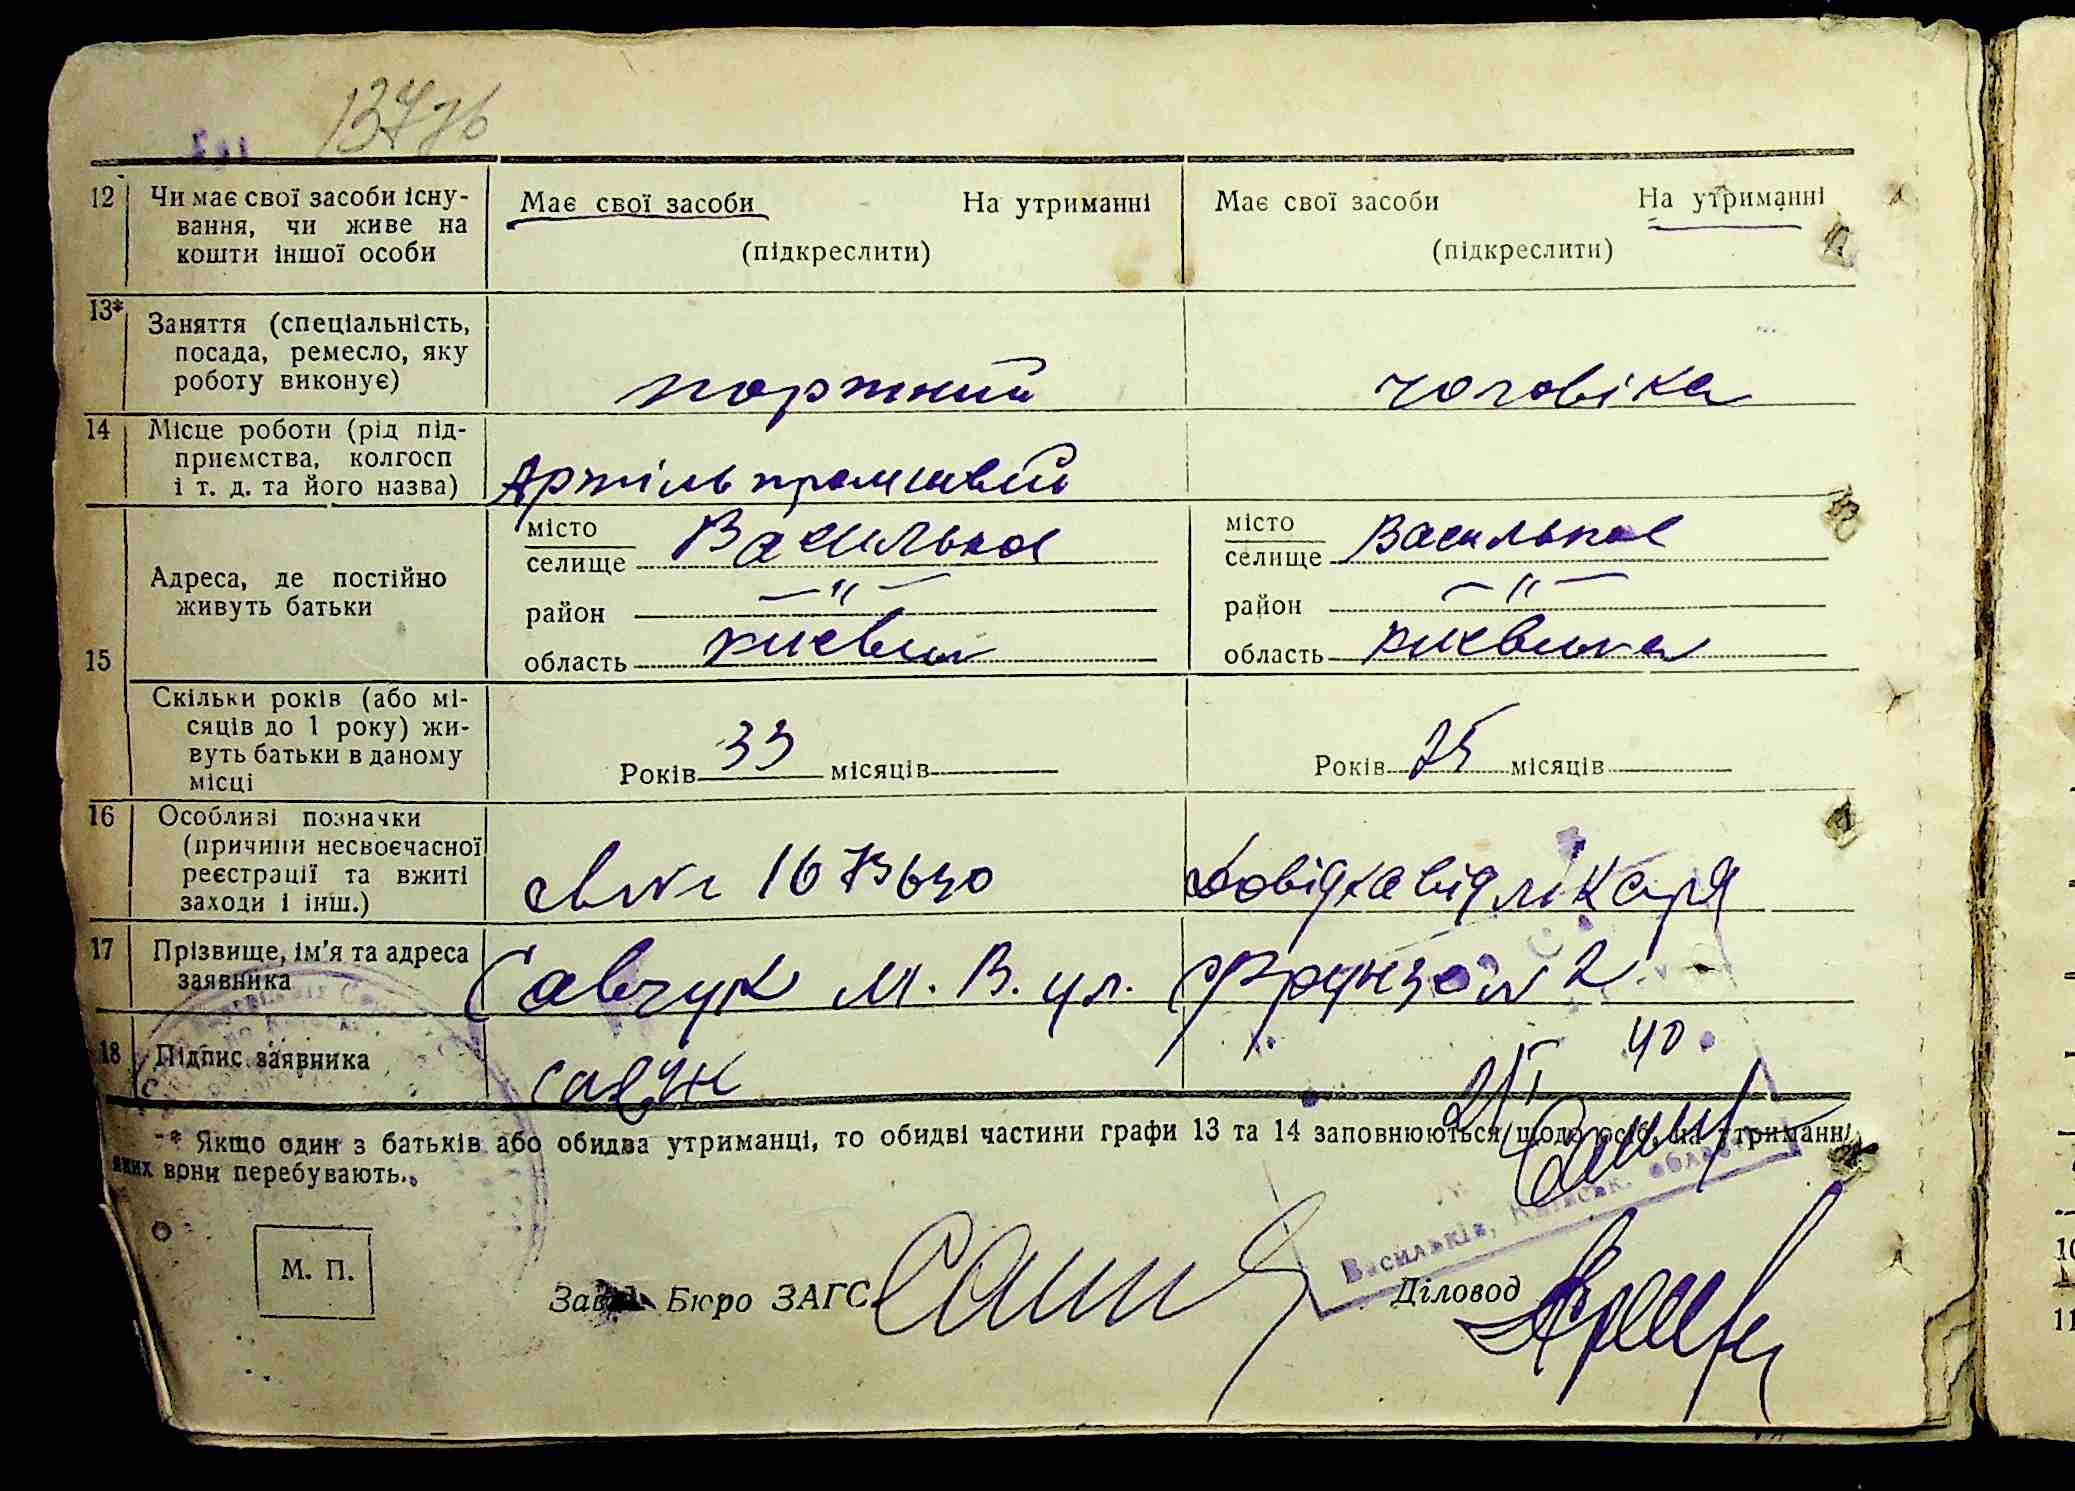 137 зв
12 Чи має свої засоби існу-
вання, чи живе на
кошти іншої особи
Має свої засоби На утриманні
(підкреслити)
Має свої засоби На утриманні
(підкреслити)
13* Заняття (спеціальність,
посада, ремесло, яку
роботу виконує)
портний
чоловіка
14 Місце роботи (рід під-
приємства, колгосп
і т. д. та його назва)
Артіль промшвей
15 Адреса, де постійно
живуть батьки
місто
селище Васильков
район —"—
область київськ
місто
селище Васильков
район —"—
область київська
Скільки років (або мі-
сяців до 1 року) жи-
вуть батьки в даному
місці
Років 33 місяців
Років 25 місяців
16 Особливі позначки
(причини несвоєчасної
реєстрації та вжиті
заходи і інш.)
Довідка від лікаря
17 Прізвище, ім'я та адреса
заявника
Савчук М. В. ул. Фрунзе № 2
18 Підпис заявника
савчук
40
* Якщо один з батьків або обидва утриманці, то обидві частини графи 13 та 14 заповнюються щодо осіб, на утриманні
яких вони перебувають.
Васильків, Київськ. області
М. П.
Зав. Бюро ЗАГС
Діловод
10
11